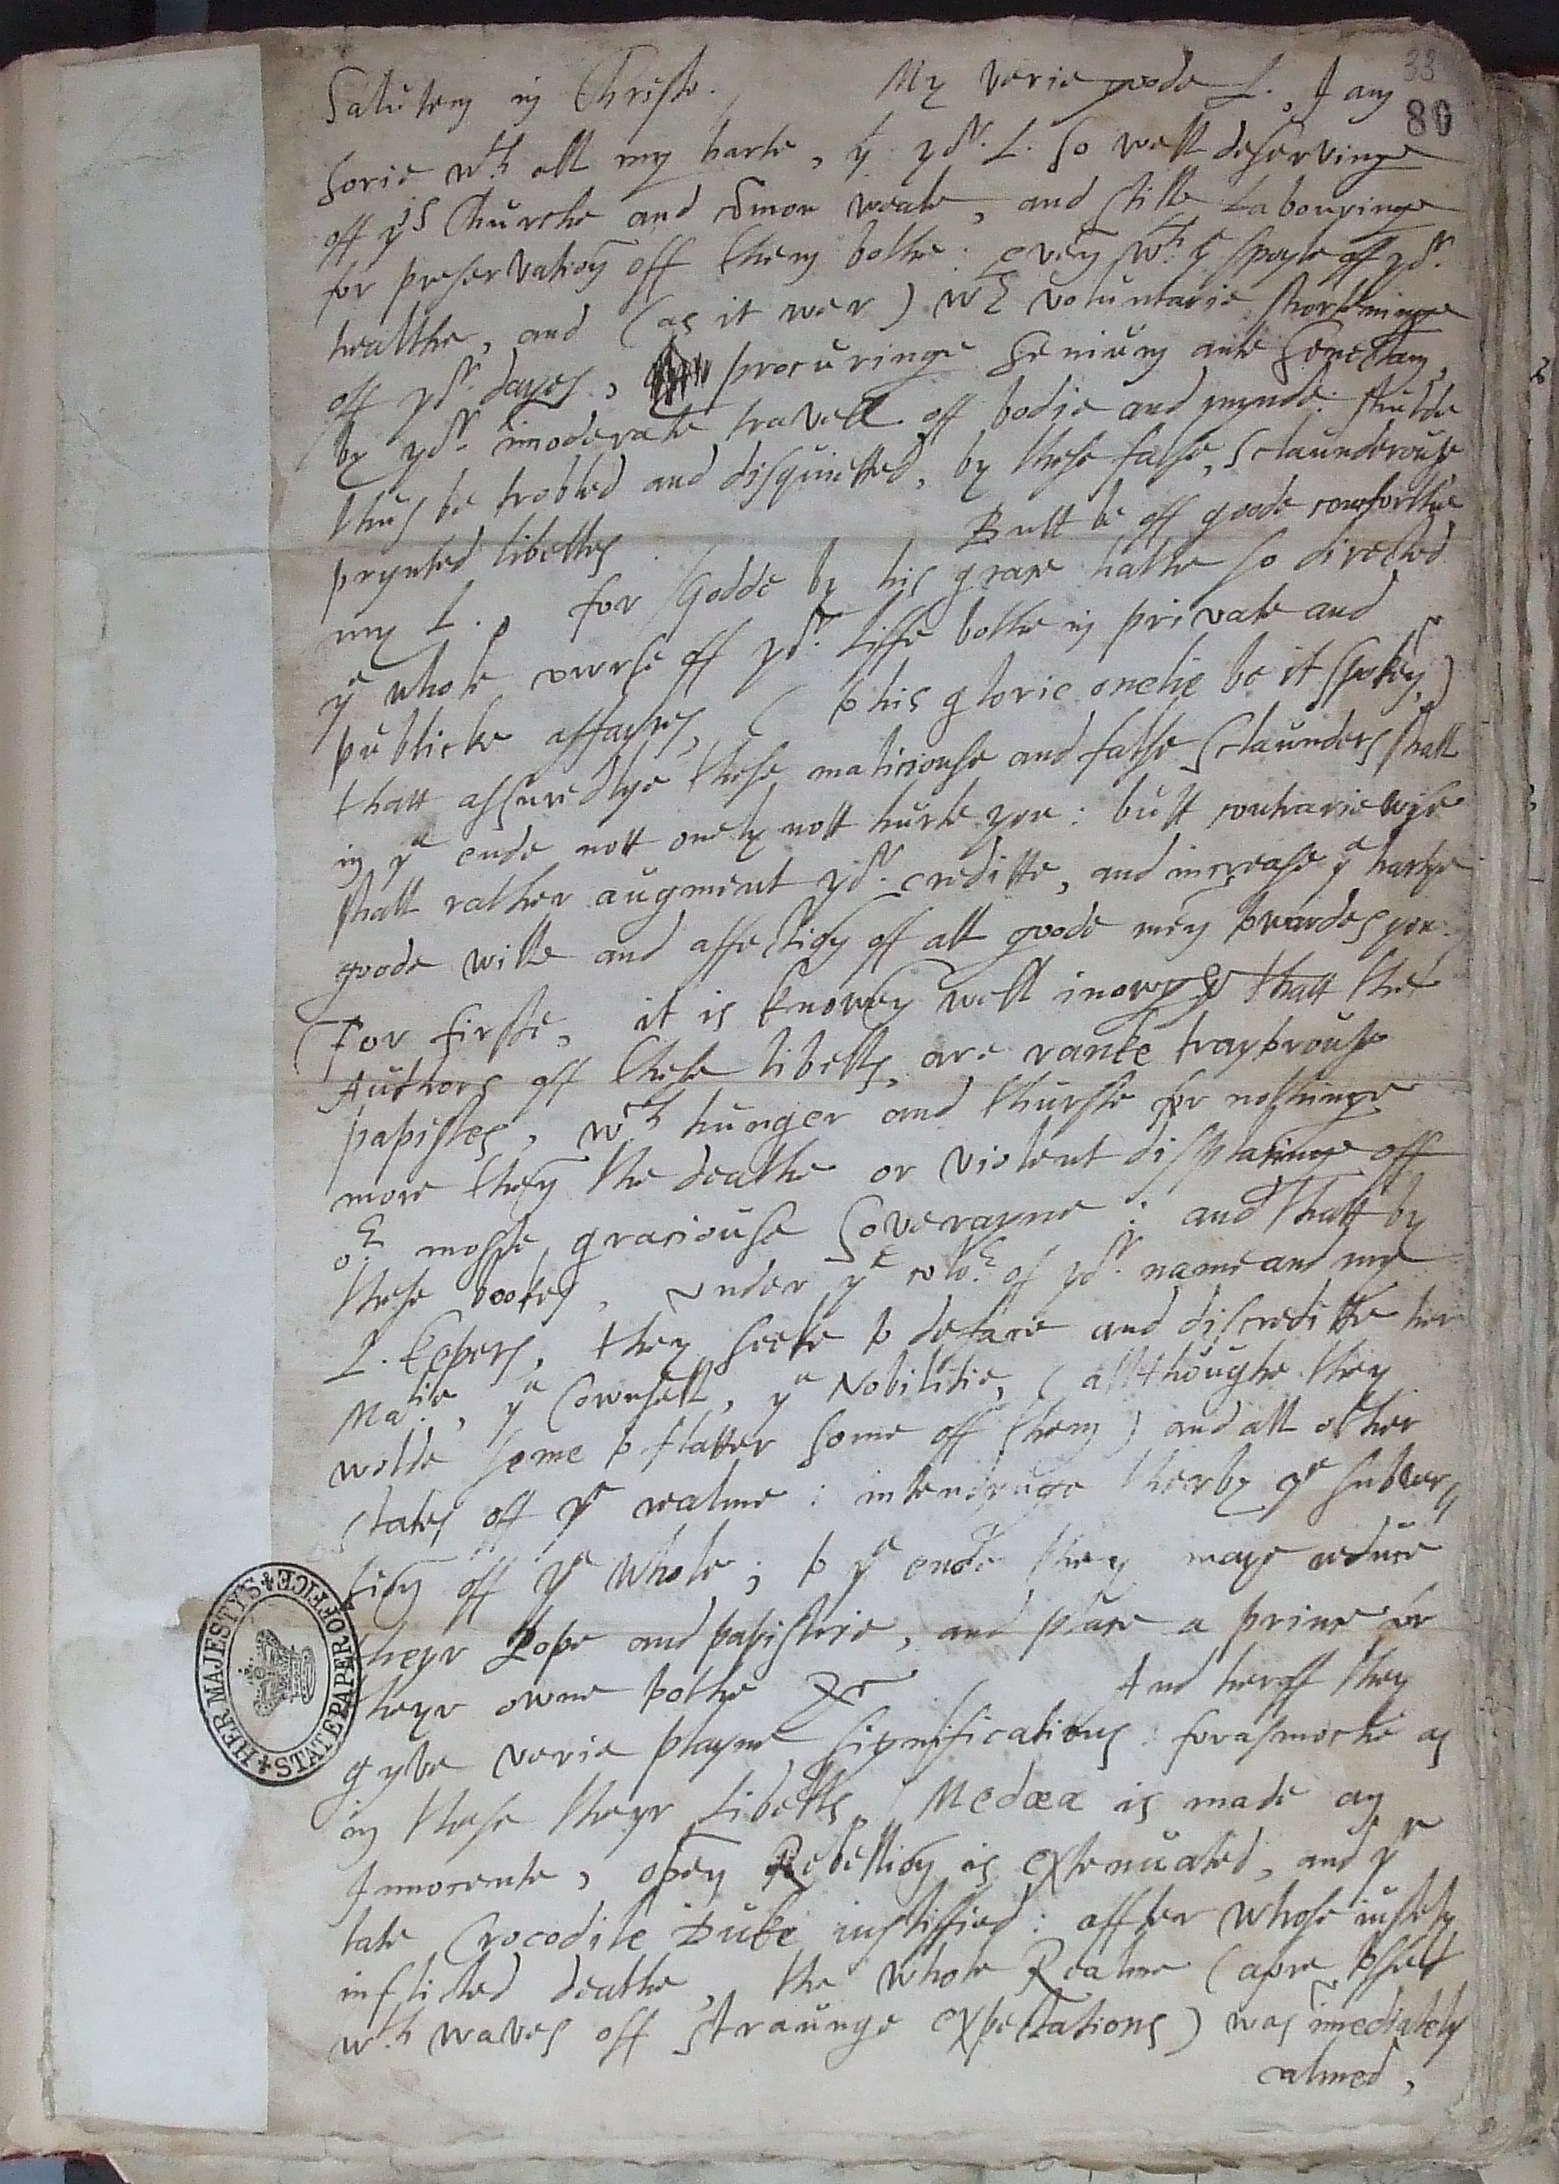 33
80
Salutem in Christo. My verie goode L., I am
sorie wth all my harte, yt yor. L. so well deservinge
off ys Churche and comon weale, and stille labouringe
for preservation off them bothe: even wth ye spoyle off yor.
healthe, and (as it wer) wth voluntarie shorteninge
off yor. dayes, procuringe senium ante senectam,
by yor. imoderate travell off bodie and mynde: shulde
thus be trobled and disquietted, by these false, sclaunderouse
prynted libelles. Butt be off goode comforthe
my L., for Godde by his grace hathe so directed
ye whole cowrse off yor. liffe bothe in private and
publicke affayres, (to his glorie onelye be it spoken,)
thatt assuredlye these maliciouse and false sclaunders shall
in ye ende nott onely nott hurte you: butt contrariewise
shall rather augment yor. creditte, and increase ye hartye
goode wille and affection off all goode men towardes you.
For firste, it is knowen well inowghe thatt the
Authors off these libells, are ranke trayterouse
papistes, wch hunger and thurste for nothinge
more then the deathe or violent displacinge off
or. moste graciouse Soverayne: and thatt by
these bookes, under ye color. of yor. name and my
L. Kepers, they seeke to deface and discreditte her
Matie, ye Cownsell, ye Nobilitie, (allthoughe they
wolde seme to flatter some off them) and all other
states off ye realme: intendynge therby ye subver=
tion off ye whole; to ye ende they maye reduce
theyr Pope and papisterie, and place a prince for
theyr owne tothe &c And heroff they
gyve verie playne significations: forasmoche as
in these theyr libells, Medæa is made an
Innocente, open Rebellion is extenuated, and ye
late Crocodile Duke iustiffied: affter whose iustely
inflicted deathe, the whole Realme (afore tossed
wth waves off straunge expectations) was imediately
calmed,
HER MAJESTY'S STATE PAPER OFFICE